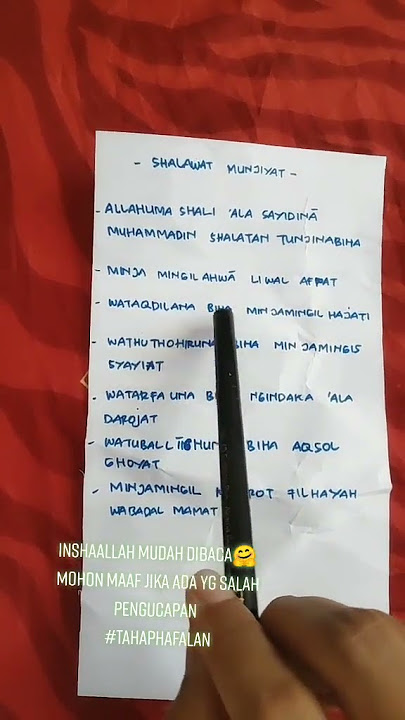 - SHALAWAT MUNJIYAT -
- ALLAHUMA SHALI 'ALA SAYIDINĀ
MUHAMMADIN SHALATAN TUNJINABIHA
- MINJA MINGIL AHWĀ LIWAL AFFAT
- WATAQDILANA BIHA MINJAMINGIL HAJATI
- WATHUTHOHIRUNA BIHA MINJAMINGIS
SYAYIAT
- WATARFAUNA NGINDAKA 'ALA
DAROJAT
- BIHA AQSOL
GHOYAT
- MINJAMINGIL FILHAYAH
WABADAL MAMAT
INSHAALLAH MUDAH DIBACA🤗
MOHON MAAF JIKA ADA YG SALAH
PENGUCAPAN
#TAHAPHAFALAN